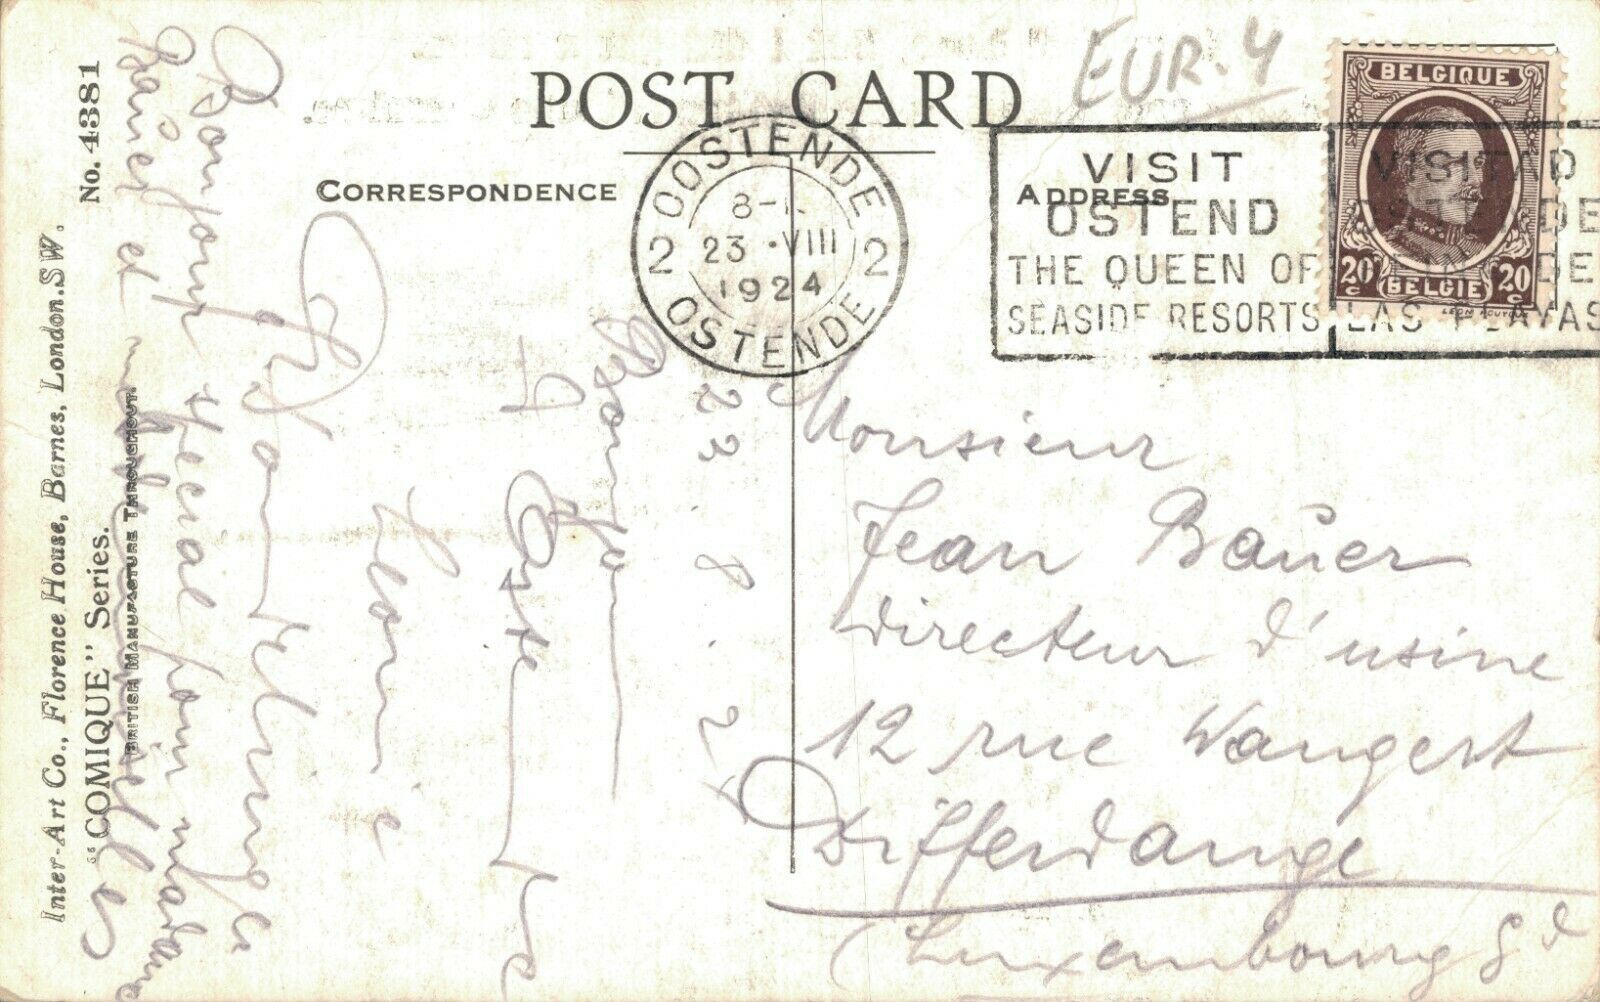 POST CARD
EUR. 4
CORRESPONDENCE
ADDRESS
OOSTENDE
8-
23 · VIII
1924
2 2
OSTENDE
VISIT
OSTEND
THE QUEEN OF
SEASIDE RESORTS
VISITAD
OSTENDE
DE
LAS PLAYAS
BELGIQUE
20c 20c
BELGIE
Monsieur
Jean Baŭer
Directeur d'usine
12 rue Wangert
Differdange
(Luxembourg Gd
23.8.24
Bonjour
Léonie
Bonjour spécial pour madame
Baŭer et mesdemoiselles
No. 4381
Inter-Art Co., Florence House, Barnes, London.SW.
"COMIQUE" Series.
BRITISH MANUFACTURE THROUGHOUT.